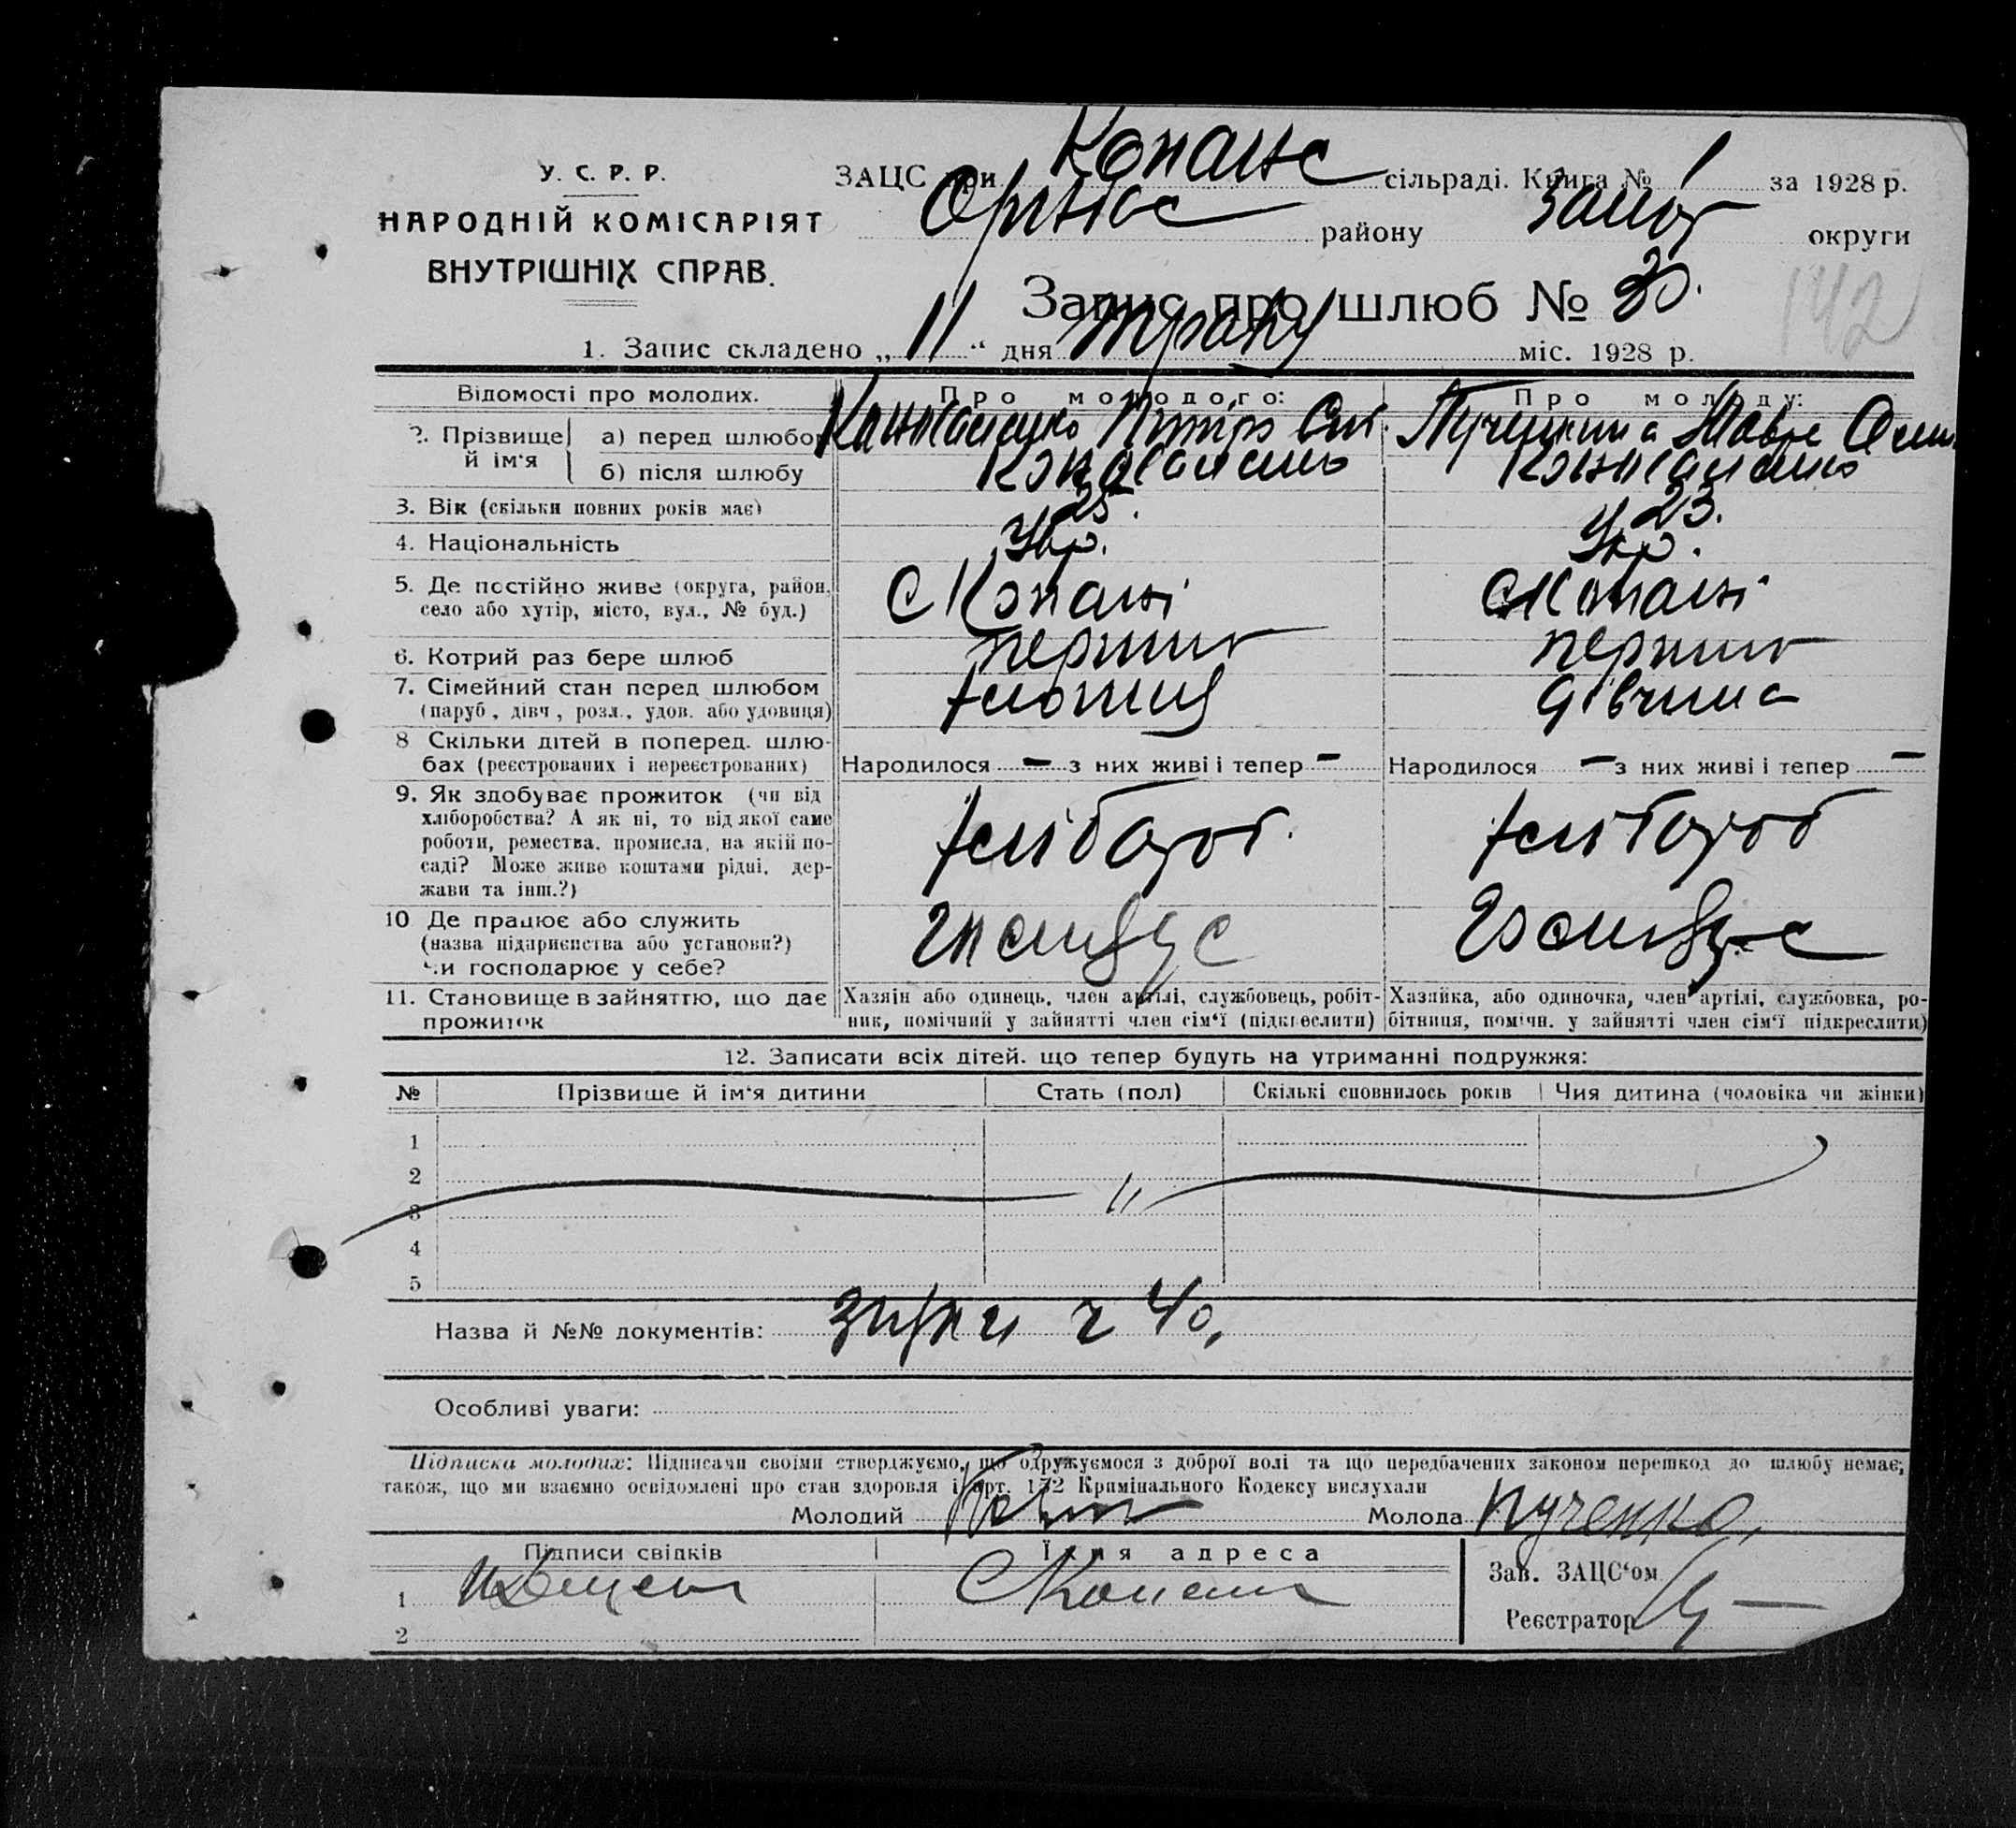 У. С. Р. Р.
НАРОДНІЙ КОМІСАРІЯТ
ВНУТРІШНІХ СПРАВ.
ЗАЦС при Копанс сільраді. Книга № 1 за 1928 р.
Оріхівс району Запор округи
Запис про шлюб № 30.
142
1. Запис складено „ 11 “ дня травня міс. 1928 р.
Відомості про молодих. Про молодого: Про молоду:
2. Прізвище й ім‘я
а) перед шлюбом
б) після шлюбу
3. Вік (скільки повних років має) 25. 23.
4. Національність Укр. Укр.
5. Де постійно живе (округа, район, село або хутір, місто, вул., № буд.) С Копані С Копані
6. Котрий раз бере шлюб перший перший
7. Сімейний стан перед шлюбом (паруб., дівч., розл., удов. або удовиця) дівчина
8 Скільки дітей в поперед. шлюбах (реєстрованих і нереєстрованих) Народилося — з них живі і тепер — Народилося — з них живі і тепер —
9. Як здобуває прожиток (чи від хліборобства? А як ні, то від якої саме роботи, ремества, промисла, на якій посаді? Може живе коштами рідні, держави та інш.?)
10 Де працює або служить (назва підприємства або установи?) чи господарює у себе?
11. Становище в зайняттю, що дає прожиток
Хазяін або одинець, член артілі, службовець, робітник, помічний у зайнятті член сім‘ї (підкреслити)
Хазяйка, або одиночка, член артілі, службовка, робітниця, помічн. у зайнятті член сім‘ї підкреслити)
12. Записати всіх дітей. що тепер будуть на утриманні подружжя:
№ Прізвище й ім‘я дитини Стать (пол) Скількі сповнилось років Чия дитина (чоловіка чи жінки)
1
2
3
4
5
Назва й №№ документів:
Особливі уваги:
Підписка молодих: Підписами своїми стверджуємо, що одружуємося з доброї волі та що передбачених законом перешкод до шлюбу немає;
також, що ми взаємно освідомлені про стан здоровля і арт. 172 Кримінального Кодексу вислухали
Молодий Молода Пученко
Підписи свідків Їхня адреса
1 С Копани
2
Зав. ЗАЦС‘ом
Реєстратор